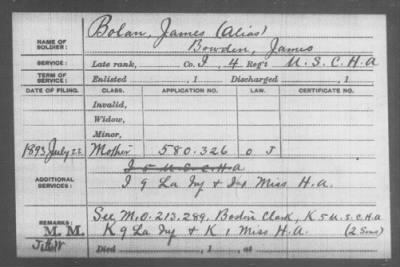 NAME OF SOLDIER: Bolan, James (Alias)
Bowden, James
SERVICE: Late rank, Co. I, 4 Reg't U.S.C.H.A
TERM OF SERVICE: Enlisted , 1 Discharged , 1
DATE OF FILING. CLASS. APPLICATION NO. LAW. CERTIFICATE NO.
Invalid,
Widow,
Minor,
1893 July 22 Mother 580.326 O J
I 5 U.S.C.H.A
ADDITIONAL SERVICES: I 9 La Inf & I 1 Miss H.A.
REMARKS: See M.O. 213,289, Clark, K 5 U.S.C.H.A
M. M. K 9 La Inf & K 1 Miss H.A. (2 Sons)
Died , 1 , at